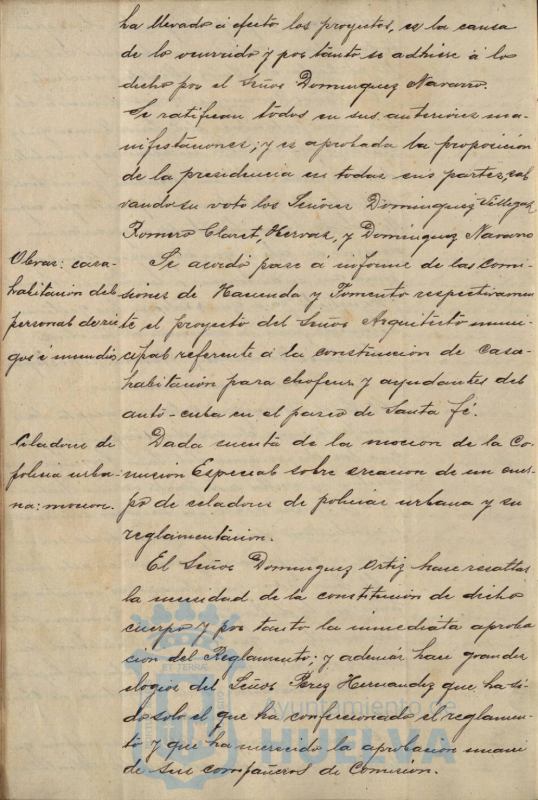 ha llevado á efecto los proyectos, es la causa
de lo ocurrido y por tanto se adhiere á lo
dicho por el Señor Dominguez Navarro.
Se ratifican todos en sus anteriores ma-
nifestaciones; y es aprobada la proposición
de la presidencia en todas sus partes, sal-
vando su voto los Señores Dominguez Villegas,
Romero Claret, Hervas, y Dominguez Navarro
Obras: casa-
habitación del
personal de rie
gos é incendios
Se acordó pase á informe de las Comi-
siones de Hacienda y Fomento respectivamen
te el proyecto del Señor Arquitecto muni-
cipal referente á la construcción de casa-
habitación para chofeur y ayudantes del
auto-cuba en el paseo de Santa Fé.
Celadores de
policia urba-
na: mocion.
Dada cuenta de la mocion de la Co-
mision Especial sobre creacion de un cuer-
po de celadores de policia urbana y su
reglamentación.
El Señor Dominguez Ortiz hace resaltar
la necesidad de la constitución de dicho
cuerpo y por tanto la inmediata aproba
cion del Reglamento; y además hace grandes
elogios del Señor Perez Hernandez que ha si-
do solo el que ha confeccionado el reglamen-
to y que ha merecido la aprobacion unani
de sus compañeros de Comisión.
Ayuntamiento de
HUELVA